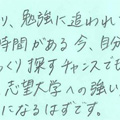 り、勉強に追われて
時間がある今、自分
っくり探すチャンスでも
志望大学への強い
になるはずです。